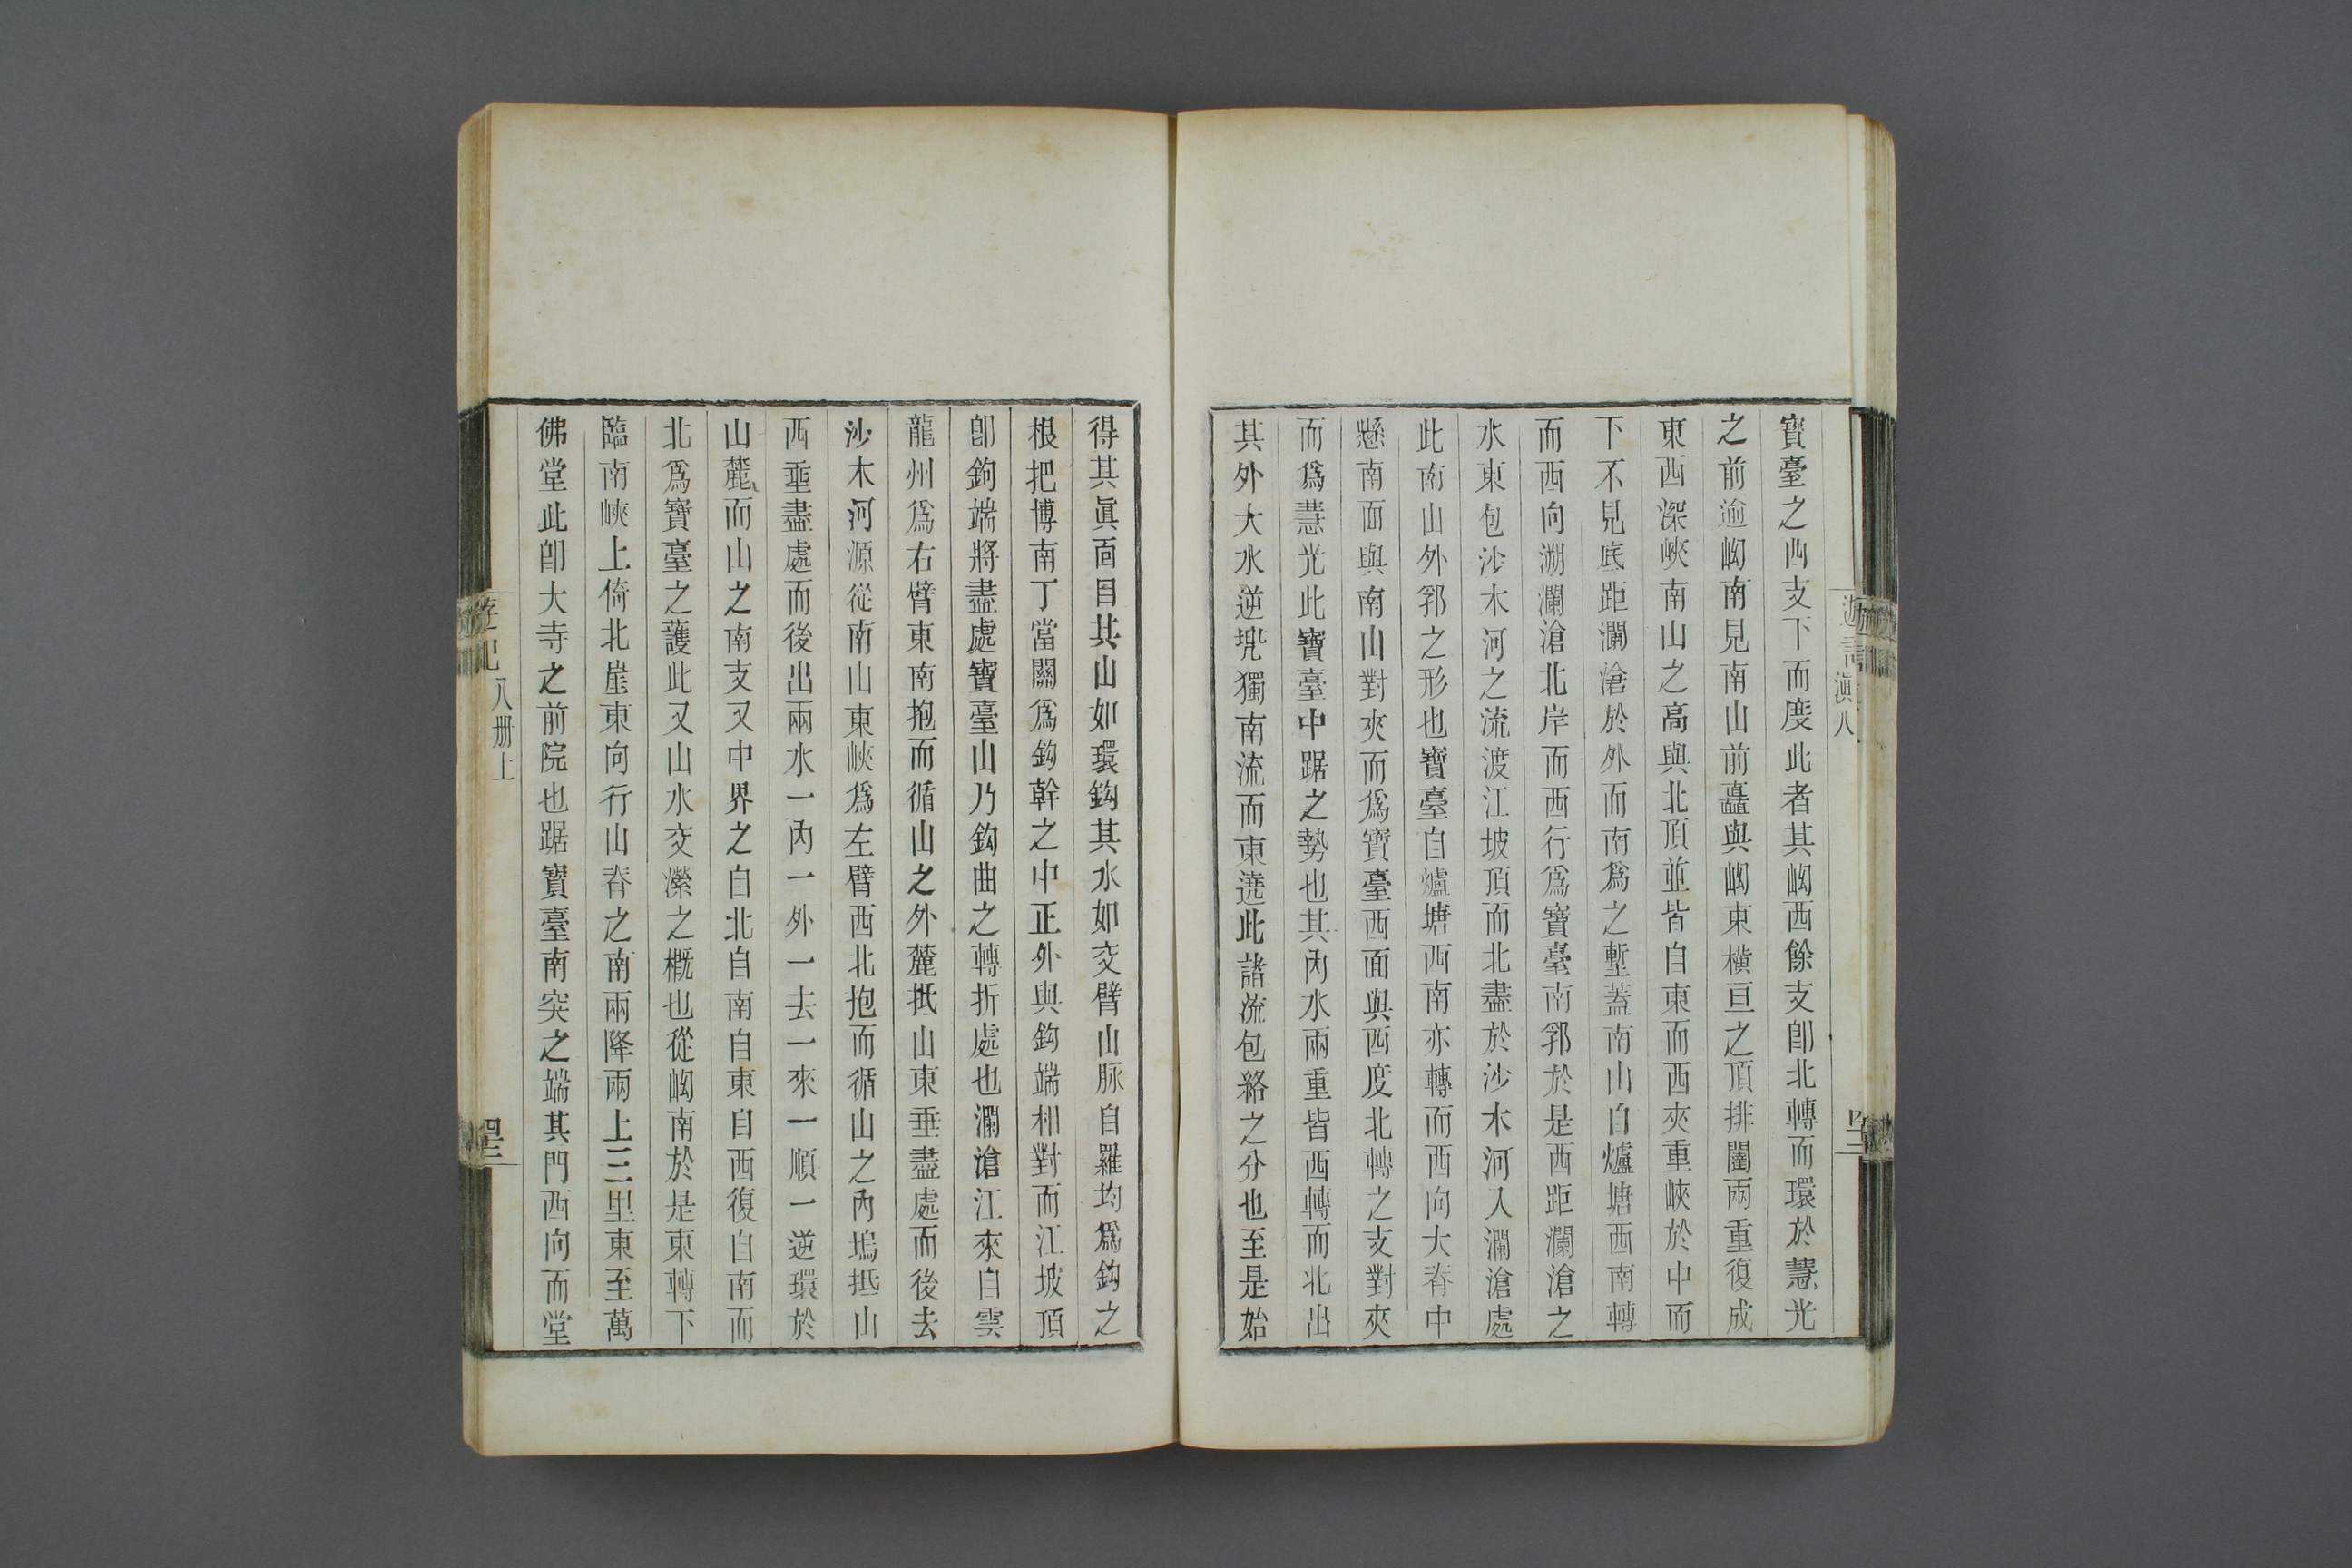 寶臺之西支下而度此者其㘭西餘支卽北轉而環於慧光
之前逾㘭南見南山前矗與㘭東橫亘之頂排闥兩重復成
東西深峽南山之高與北頂並皆自東而西夾重峽於中而
下不見底距瀾滄於外而南爲之塹蓋南山自爐塘西南轉
而西向溯瀾滄北岸而西行爲寶臺南郛於是西距瀾滄之
水東包沙木河之流渡江坡頂而北盡於沙木河入瀾滄處
此南山外郛之形也寶臺自爐塘西南亦轉而西向大脊中
懸南面與南山對夾而爲寶臺西面與西度北轉之支對夾
而爲慧光此寶臺中踞之勢也其內水兩重皆西轉而北出
其外大水逆兜獨南流而東遶此諸流包絡之分也至是始
得其眞面目其山如環鈎其水如交臂山脉自羅均爲鈎之
根把博南丁當關爲鈎幹之中正外與鈎端相對而江坡頂
卽鈎端將盡處寶臺山乃鈎曲之轉折處也瀾滄江來自雲
龍州爲右臂東南抱而循山之外麓抵山東垂盡處而後去
沙木河源從南山東峽爲左臂西北抱而循山之內塢抵山
西垂盡處而後出兩水一內一外一去一來一順一逆環於
山麓而山之南支又中界之自北自南自東自西復自南而
北爲寶臺之護此又山水交瀠之概也從㘭南於是東轉下
臨南峽上倚北崖東向行山脊之南兩降兩上三里東至萬
佛堂此卽大寺之前院也踞寶臺南突之端其門西向而堂
八册上